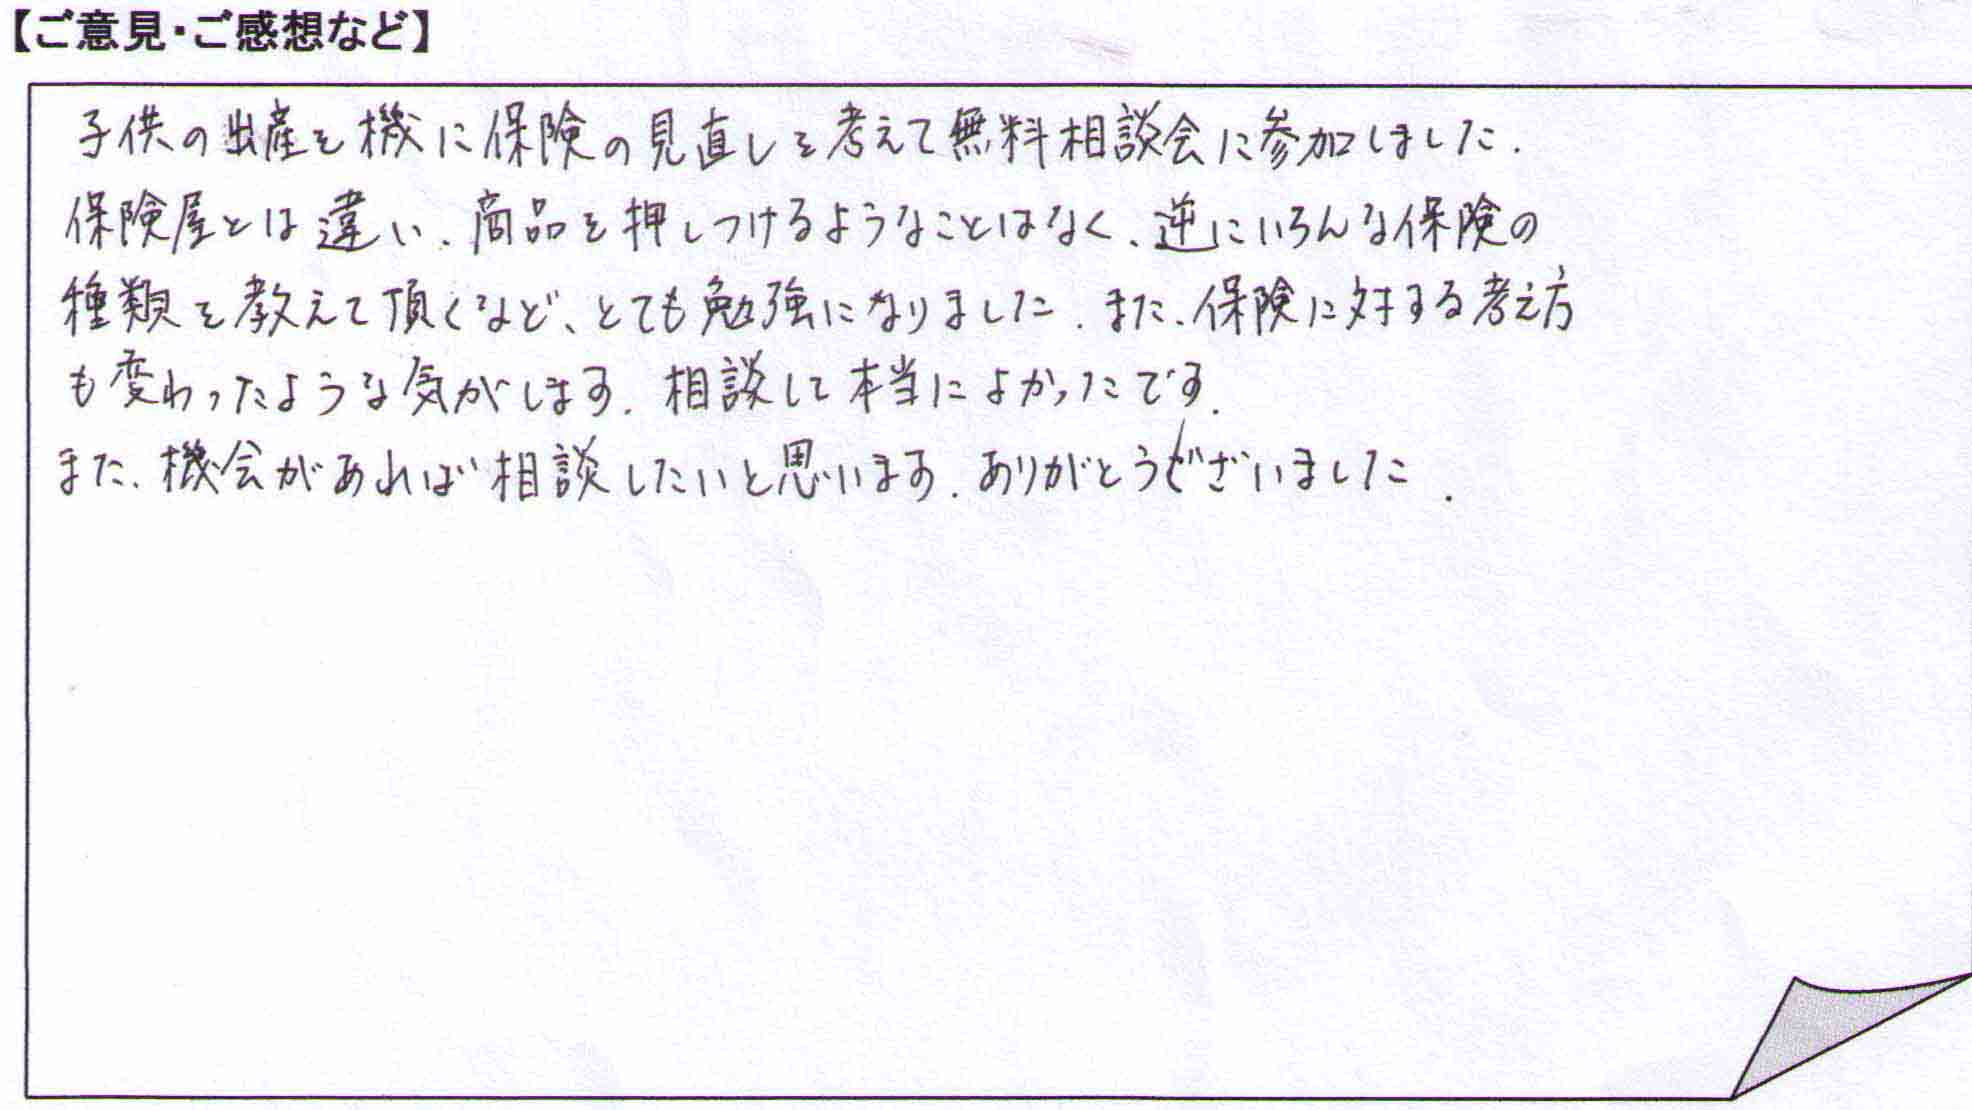 【ご意見・ご感想など】
子供の出産を機に保険の見直しを考えて無料相談会に参加しました.
保険屋とは違い、商品を押しつけるようなことはなく、逆にいろんな保険の
種類を教えて頂くなど、とても勉強になりました. また、保険に対する考え方
も変わったような気がします. 相談して本当によかったです.
また、機会があれば相談したいと思います. ありがとうございました.